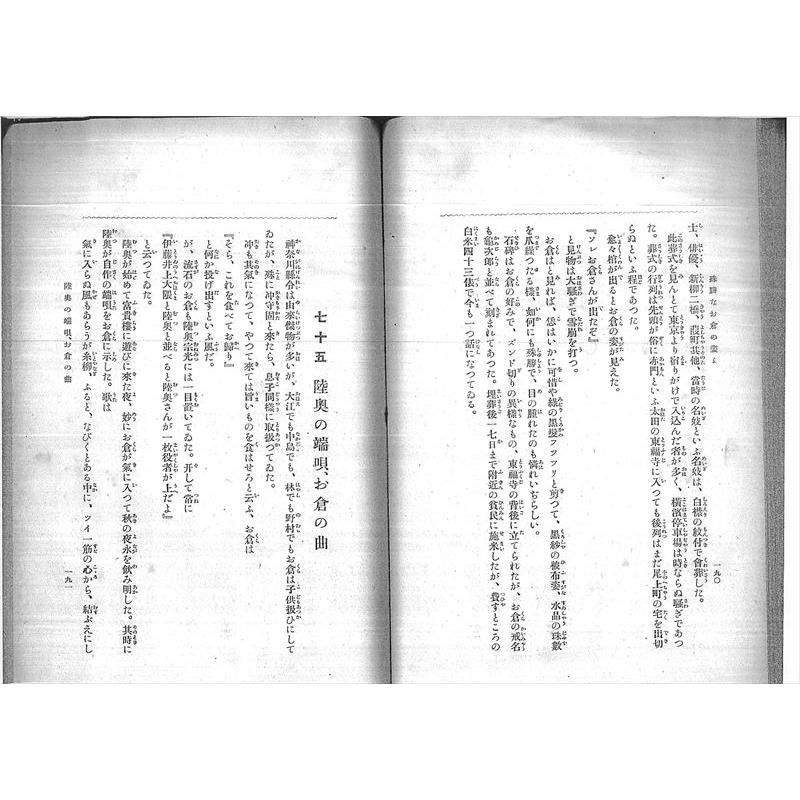 殊勝なお倉の姿よ
一九〇
士、俳優、新柳二橋、葭町其他、當時の名妓といふ名妓は、白襟の紋付で會葬した。
此葬式を見んとて東京より宿りがけで入込んだ者が多く、横濱停車場は時ならぬ騷ぎであつ
た。葬式の行列は先頭が俗に赤門といふ太田の東福寺に入つても後列はまだ尾上町の宅を出切
らぬといふ程であつた。
愈々棺が出るとお倉の姿が見えた。
『ソレお倉さんが出たぞ』
と見物は大騷ぎで雪崩を打つ。
お倉と見れば、恁はいかに可惜や綠の黒髮フツツリと剪つて、黒紗の被布姿、水晶の珠數
を爪繰つたる樣、如何にも殊勝で、目の腫れたのも憐れいぢらしい。
石碑はお倉の好みで、ズンド切りの異樣なもの、東福寺の背後に立てられたが、お倉の戒名
も龜次郎と並べて刻まれてあつた。埋葬後一七日まで附近の貧民に施米したが、費すところの
白米四十三俵で今も一つ話になつてゐる。
七十五 陸奥の端唄、お倉の曲
神奈川縣令は由來傑物が多いが、大江でも中島でも、林でも野村でもお倉は子供扱ひにして
ゐたが、殊に沖守固と來たら、息子同樣に取扱つてゐた。
沖も其氣になつて、やつて來ては旨いものを食はせろと云ふ、お倉は
『そら、これを食べてお歸り』
と何か投げ出すといふ風だ。
が、流石のお倉も陸奥宗光には一目置いてゐた。幷して常に
『伊藤井上大隈と陸奥と並べると陸奥さんが一枚役者が上だよ』
と云つてゐた。
陸奥が始めて富貴樓に遊びに來た夜、妙にお倉が氣に入つて秋の夜永を飲み明した。其時に
陸奥が自作の端唄をお倉に示した。歌は
氣に入らぬ風もあらうが糸柳、ふると、なびくとある中に、ツイ一筋の心から、結ぶえにし
陸奥の端唄、お倉の曲
一九一